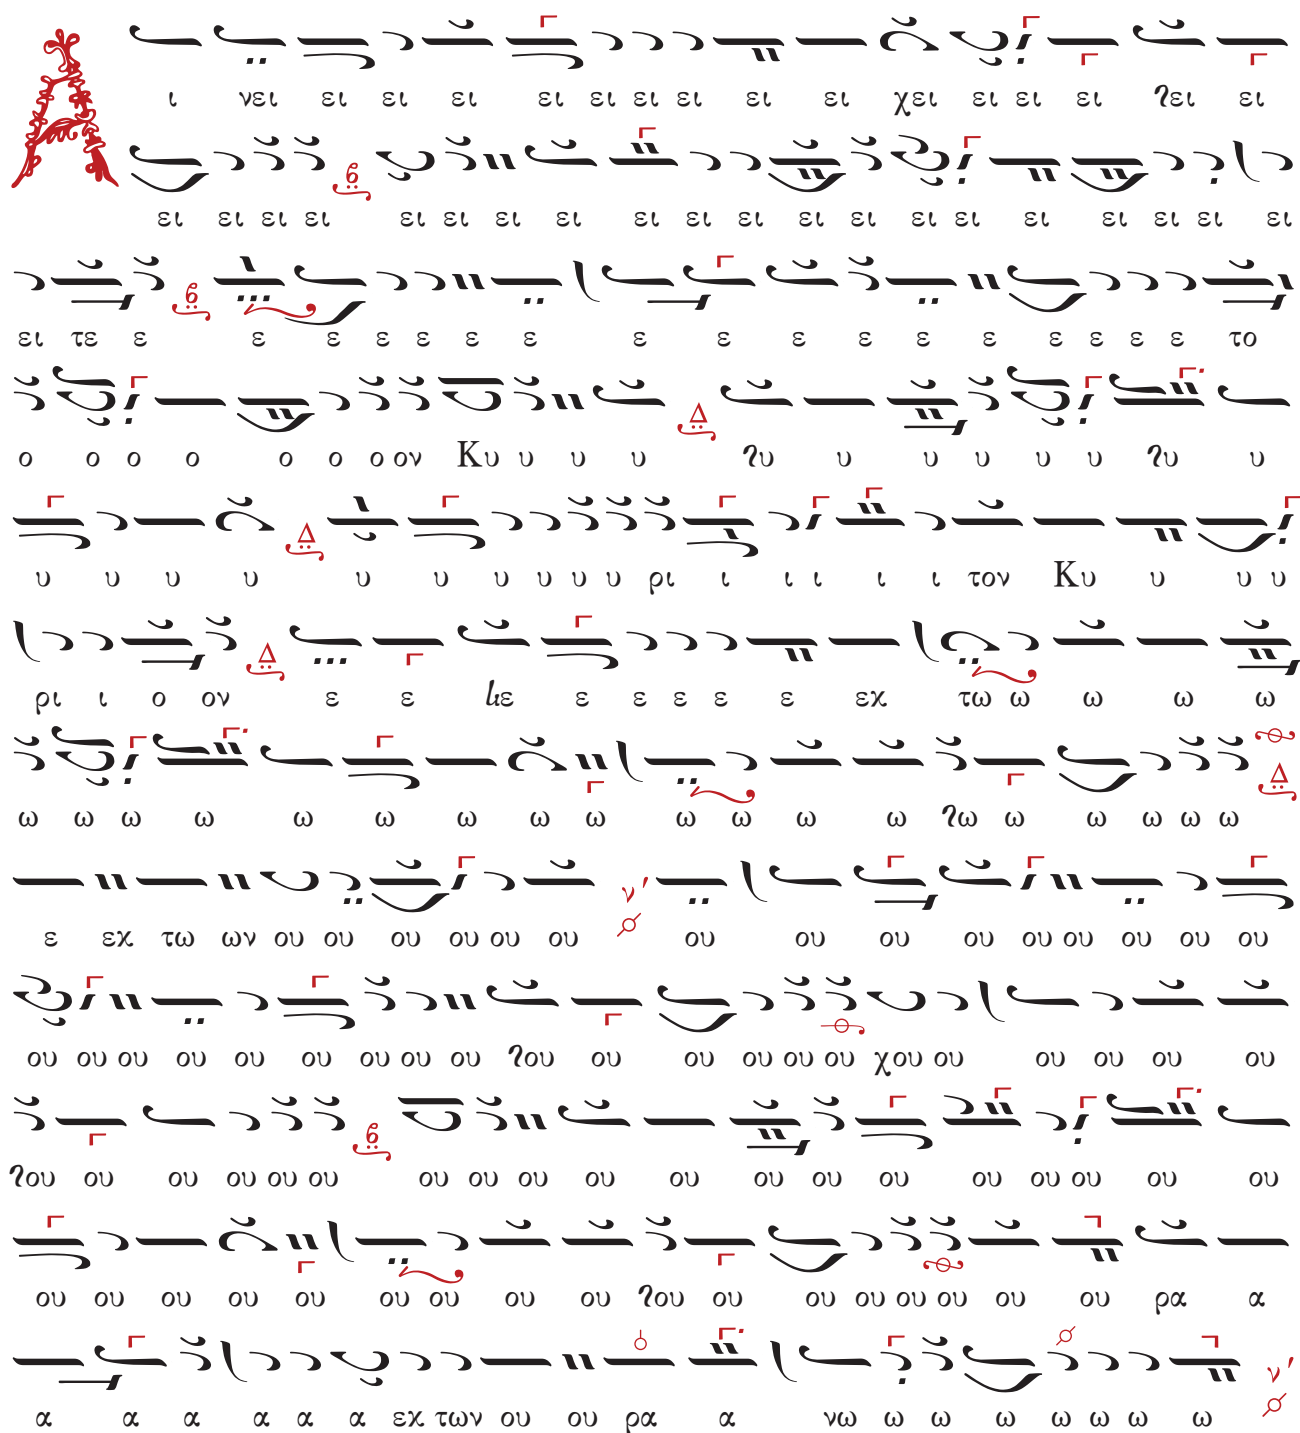 Α ι νει ει ει ει ει ει ει ει ει ει χει ει ει ει 2ει ει
ει ει ει ει ει ει ει ει ει ει ει ει ει ει ει ει ει ει ει ει
ει τε ε ε ε ε ε ε ε ε ε ε ε ε ε ε ε ε το
ο ο ο ο ο ο ο ον Κυ υ υ υ 2υ υ υ υ υ υ 2υ υ
υ υ υ υ υ υ υ υ υ υ ρι ι ι ι ι ι τον Κυ υ υ υ
ρι ι ο ον ε ε ιε ε ε ε ε ε εκ τω ω ω ω ω
ω ω ω ω ω ω ω ω ω ω ω ω ω 2ω ω ω ω ω ω
ε εκ τω ων ου ου ου ου ου ου ου ου ου ου ου ου ου ου ου
ου ου ου ου ου ου ου ου ου 2ου ου ου ου ου ου χου ου ου ου ου ου
2ου ου ου ου ου ου ου ου ου ου ου ου ου ου ου ου ου ου ου
ου ου ου ου ου ου ου ου ου 2ου ου ου ου ου ου ου ου ρα α
α α α α α α εκ των ου ου ρα α νω ω ω ω ω ω ω ω